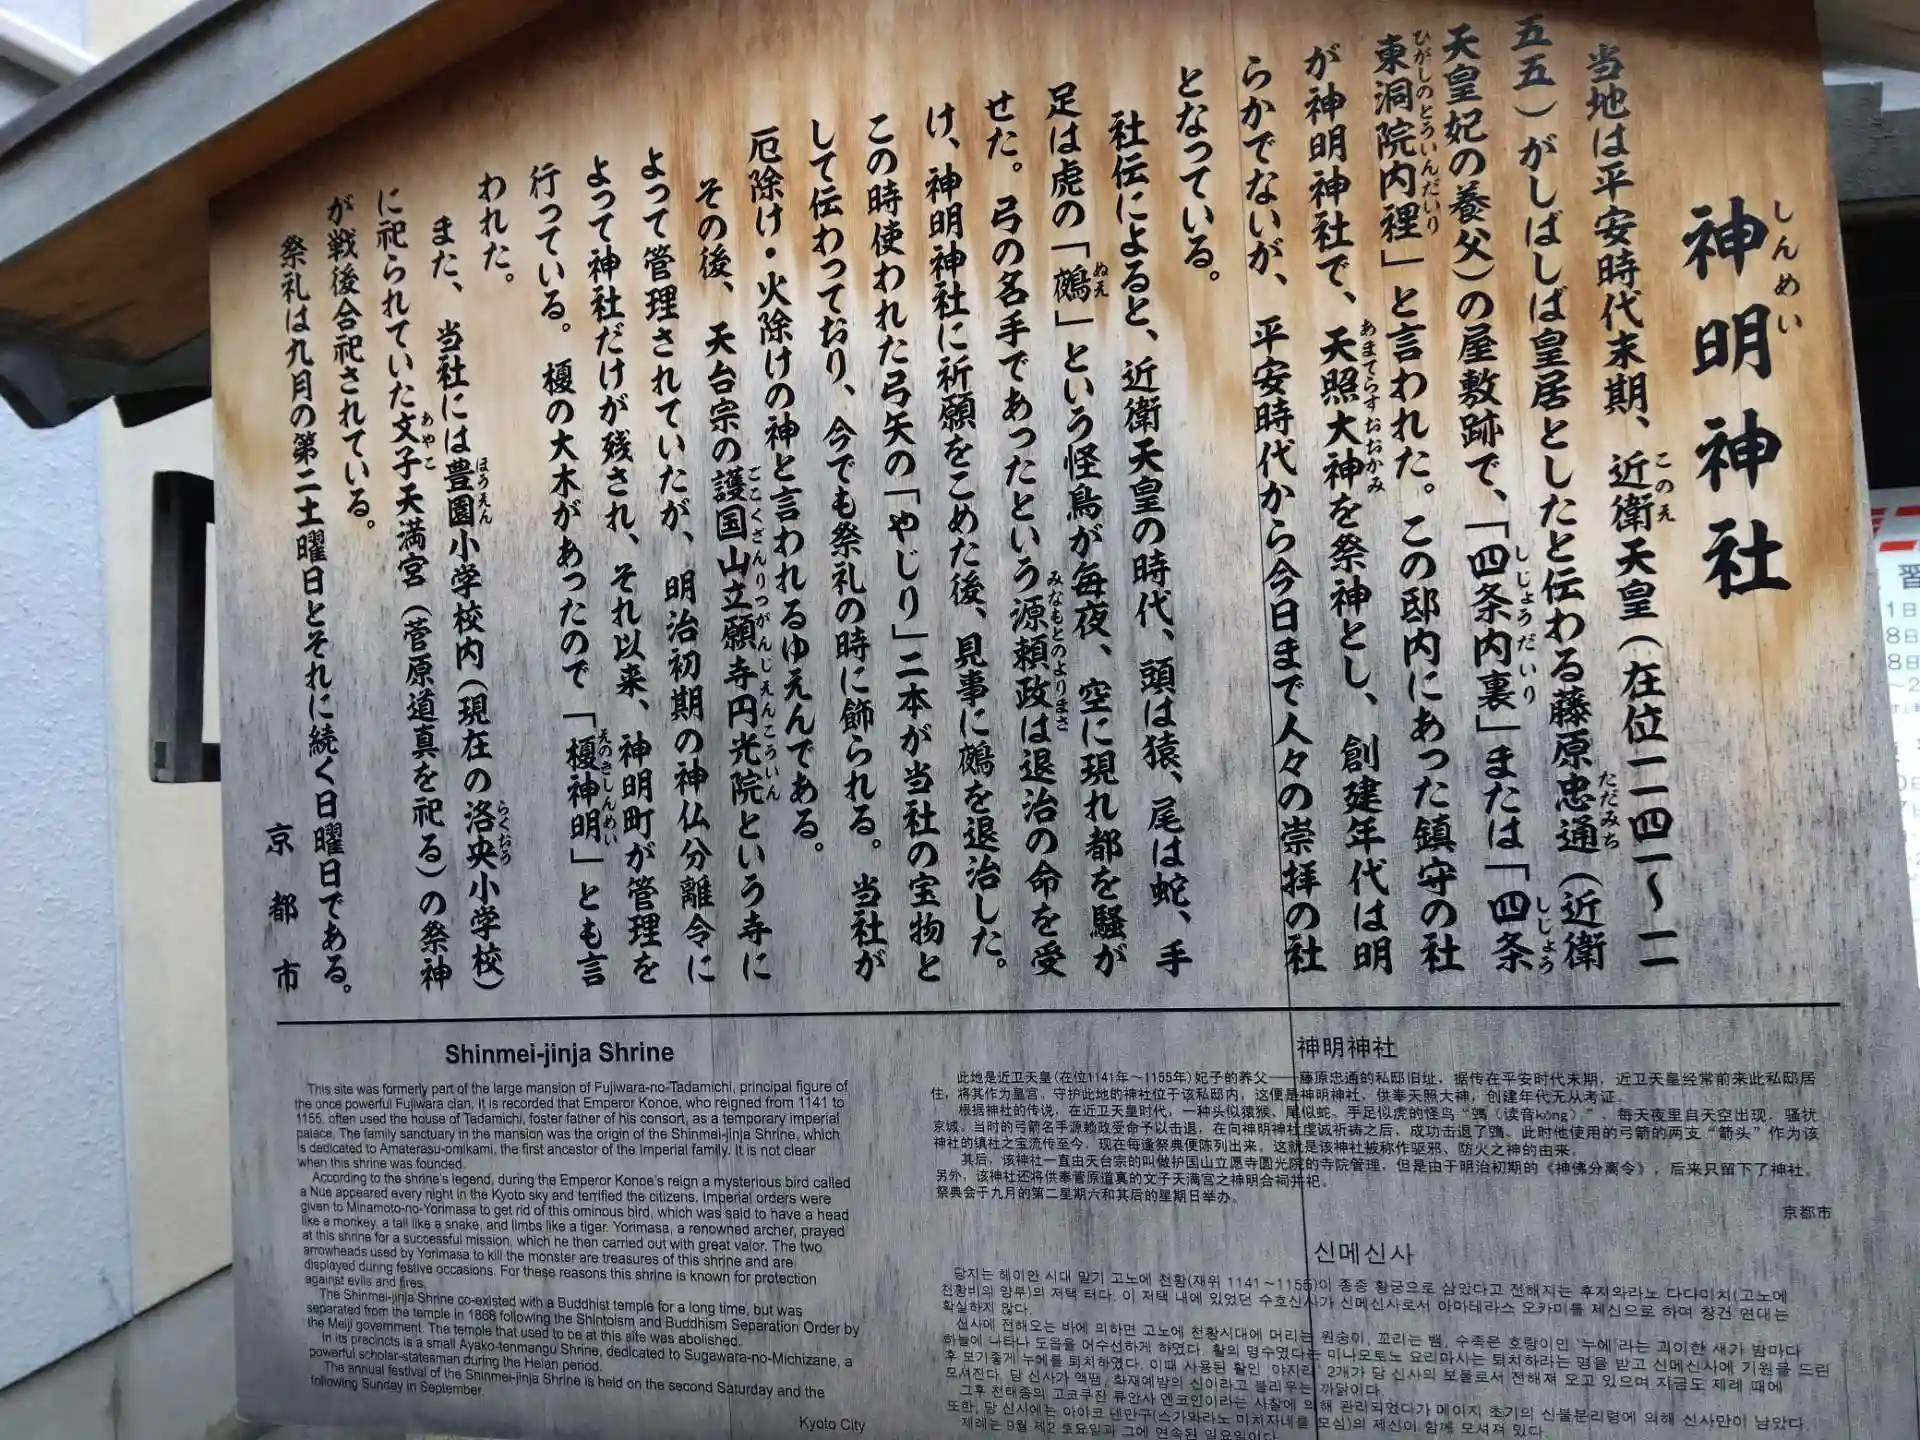 神明神社
しんめい
当地は平安時代末期、近衛天皇（在位一一四一〜一一
このえ
五五）がしばしば皇居としたと伝わる藤原忠通（近衛
ただみち
天皇妃の養父）の屋敷跡で、「四条内裏」または「四条
しじょうだいり
しじょう
東洞院内裡」と言われた。この邸内にあった鎮守の社
ひがしのとういんだいり
が神明神社で、天照大神を祭神とし、創建年代は明
あまてらすおおかみ
らかでないが、平安時代から今日まで人々の崇拝の社
となっている。
社伝によると、近衛天皇の時代、頭は猿、尾は蛇、手
足は虎の「鵺」という怪鳥が毎夜、空に現れ都を騒が
ぬえ
せた。弓の名手であったという源頼政は退治の命を受
みなもとのよりまさ
け、神明神社に祈願をこめた後、見事に鵺を退治した。
この時使われた弓矢の「やじり」二本が当社の宝物と
して伝わっており、今でも祭礼の時に飾られる。当社が
厄除け・火除けの神と言われるゆえんである。
その後、天台宗の護国山立願寺円光院という寺に
ごこくざんりつがんじえんこういん
よって管理されていたが、明治初期の神仏分離令に
よって神社だけが残され、それ以来、神明町が管理を
行っている。榎の大木があったので「榎神明」とも言
えのきしんめい
われた。
また、当社には豊園小学校内（現在の洛央小学校）
ほうえん
らくおう
に祀られていた文子天満宮（菅原道真を祀る）の祭神
あやこ
が戦後合祀されている。
祭礼は九月の第二土曜日とそれに続く日曜日である。
京都市
Shinmei-jinja Shrine
This site was formerly part of the large mansion of Fujiwara-no-Tadamichi, principal figure of
the once powerful Fujiwara clan. It is recorded that Emperor Konoe, who reigned from 1141 to
1155, often used the house of Tadamichi, foster father of his consort, as a temporary imperial
palace. The family sanctuary in the mansion was the origin of the Shinmei-jinja Shrine, which
is dedicated to Amaterasu-omikami, the first ancestor of the Imperial family. It is not clear
when this shrine was founded.
According to the shrine's legend, during the Emperor Konoe's reign a mysterious bird called
a Nue appeared every night in the Kyoto sky and terrified the citizens. Imperial orders were
given to Minamoto-no-Yorimasa to get rid of this ominous bird, which was said to have a head
like a monkey, a tail like a snake, and limbs like a tiger. Yorimasa, a renowned archer, prayed
at this shrine for a successful mission, which he then carried out with great valor. The two
arrowheads used by Yorimasa to kill the monster are treasures of this shrine and are
displayed during festive occasions. For these reasons this shrine is known for protection
against evils and fires.
The Shinmei-jinja Shrine co-existed with a Buddhist temple for a long time, but was
separated from the temple in 1868 following the Shintoism and Buddhism Separation Order by
the Meiji government. The temple that used to be at this site was abolished.
In its precincts is a small Ayako-tenmangu Shrine, dedicated to Sugawara-no-Michizane, a
powerful scholar-statesman during the Heian period.
The annual festival of the Shinmei-jinja Shrine is held on the second Saturday and the
following Sunday in September.
Kyoto City
神明神社
此地是近卫天皇（在位1141年～1155年）妃子的养父——藤原忠通的私邸旧址，据传在平安时代末期，近卫天皇经常前来此私邸居
住，将其作为皇宫。守护此地的神社位于该私邸内，这便是神明神社，供奉天照大神，创建年代无从考证。
根据神社的传说，在近卫天皇时代，一种头似猿猴、尾似蛇、手足似虎的怪鸟“鵼（读音kōng）”，每天夜里自天空出现，骚扰
京城。当时的弓箭名手源赖政受命予以击退，在向神明神社虔诚祈祷之后，成功击退了鵼。此时他使用的弓箭的两支“箭头”作为该
神社的镇社之宝流传至今，现在每逢祭典便陈列出来。这就是该神社被称作驱邪、防火之神的由来。
其后，该神社一直由天台宗的叫做护国山立愿寺圆光院的寺院管理，但是由于明治初期的《神佛分离令》，后来只留下了神社。
另外，该神社还将供奉菅原道真的文子天满宫之神明合祠并祀。
祭典会于九月的第二星期六和其后的星期日举办。
京都市
신메신사
당지는 헤이안 시대 말기 고노에 천황(재위 1141～1155)이 종종 황궁으로 삼았다고 전해지는 후지와라노 다다미치(고노에
천황비의 양부)의 저택 터다. 이 저택 내에 있었던 수호신사가 신메신사로서 아마테라스 오카미를 제신으로 하며 창건 연대는
확실하지 않다.
신사에 전해오는 바에 의하면 고노에 천황시대에 머리는 원숭이, 꼬리는 뱀, 수족은 호랑이인 '누에'라는 괴이한 새가 밤마다
하늘에 나타나 도읍을 어수선하게 하였다. 활의 명수였다는 미나모토노 요리마사는 퇴치하라는 명을 받고 신메신사에 기원을 드린
후 보기좋게 누에를 퇴치하였다. 이때 사용된 활인 '야지리' 2개가 당 신사의 보물로서 전해져 오고 있으며 지금도 제례 때에
모셔진다. 당 신사가 액땜, 화재예방의 신이라고 불리우는 까닭이다.
그후 천태종의 고코쿠잔 류안사 엔코인이라는 사찰에 의해 관리되었다가 메이지 초기의 신불분리령에 의해 신사만이 남았다.
또한, 당 신사에는 아야코 덴만구(스가와라노 미치자네를 모심)의 제신이 함께 모셔져 있다.
제례는 9월 제2 토요일과 그에 연속된 일요일이다.